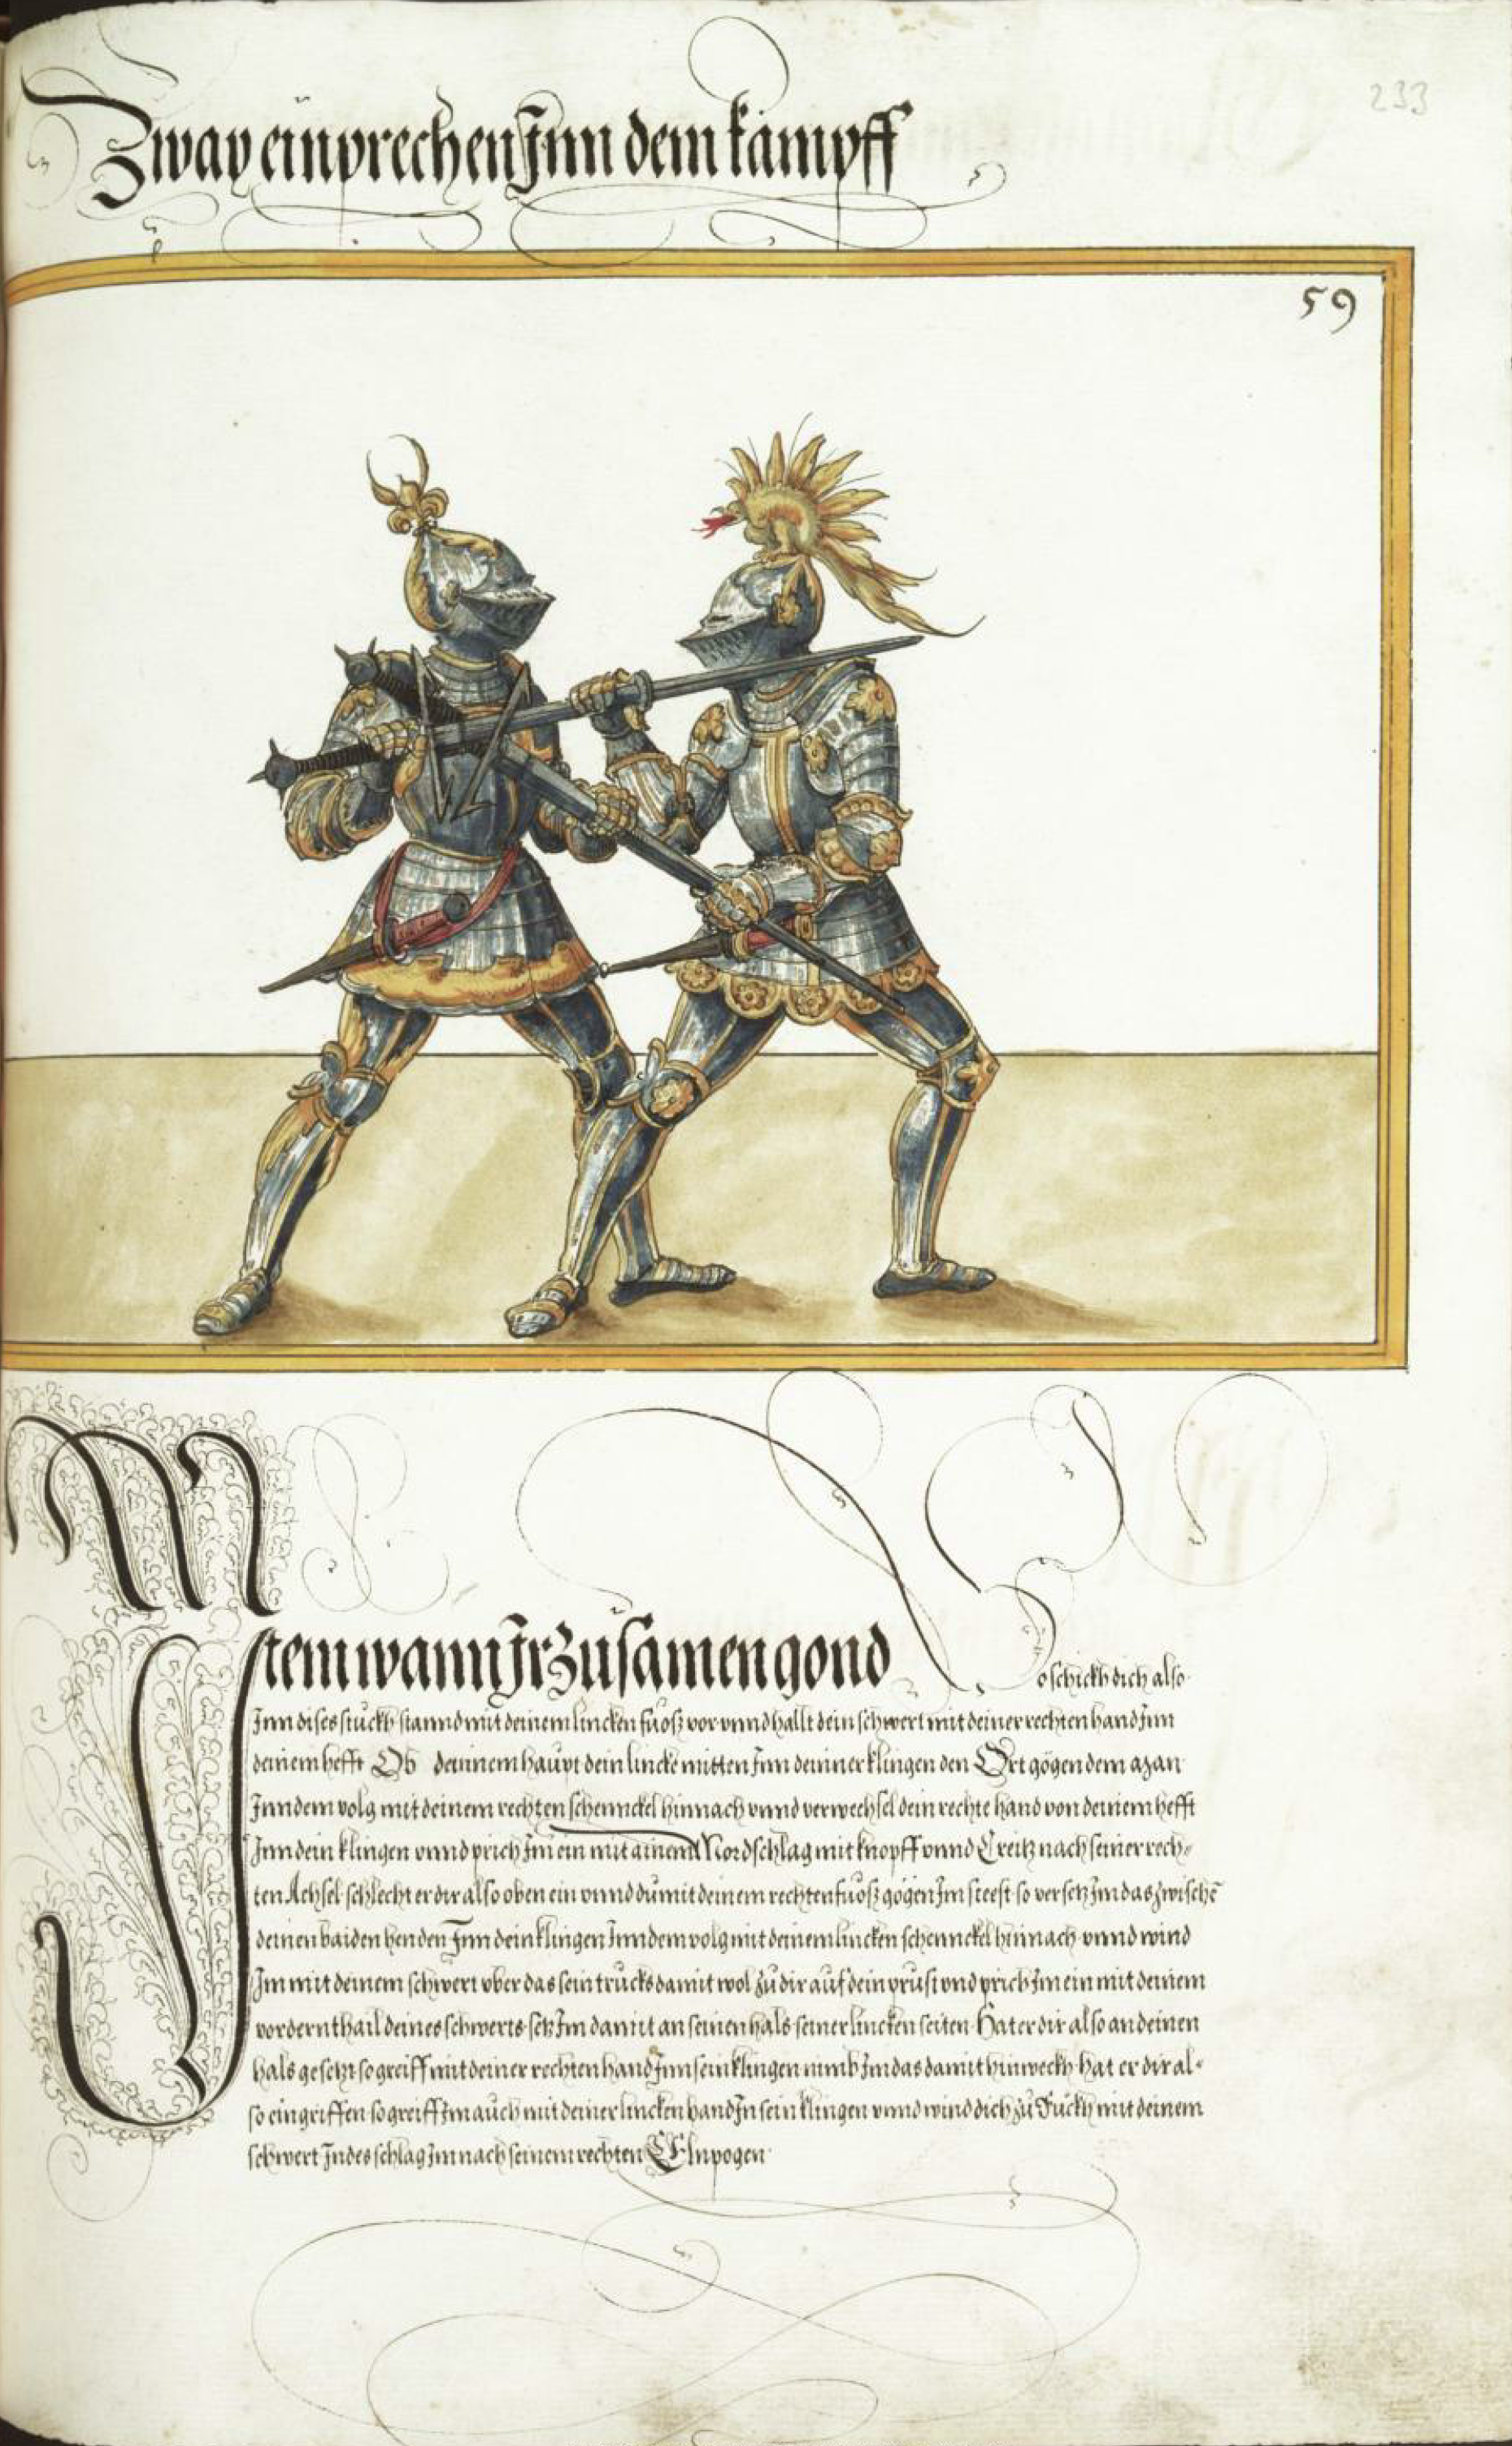 233
Zway einprechen Jnn dem kampff
59
Jtem wann Jr zusamen gond So schickh dich also
Jnn dises stuckh stannd mit deinem lincken fuosz vor vnnd hallt dein schwert mit deiner rechten hand Jnn
deinem hefft Ob deinnem haupt dein lincke mitten Jnn deinner klingen den Ort gögen dem man
Jnn dem volg mit deinem rechten schennckel hinnach vnnd verwechsel dein rechte hand von deinem hefft
Jnn dein klingen vnnd prich Jm ein mit ainem Mordschlag mit knopff vnnd Creitz nach seiner rech-
ten Achsel schlecht er dir also oben ein vnnd du mit deinem rechten fuosz gögen Jm steest so versetz Jm das zwischē
deinen baiden henden Jnn dein klingen Jnn dem volg mit deinem lincken schennckel hinnach vnnd wind
Jm mit deinem schwert vber das sein trucks damit wol zu dir auf dein prust vnd prich Jm ein mit deinem
vordern thail deines schwerts setz Jm damit an seinen hals seiner lincken seiten Hat er dir also an deinen
hals gesetzt so greiff mit deiner rechten hand Jnn sein klingen nimb Jm das damit hinweckh hat er dir al-
so eingriffen so greiff Jm auch mit deiner lincken hand Jn sein klingen vnnd wind dich zu Ruckh mit deinem
schwert Jndes schlag Jm nach seinem rechten Elnpogen